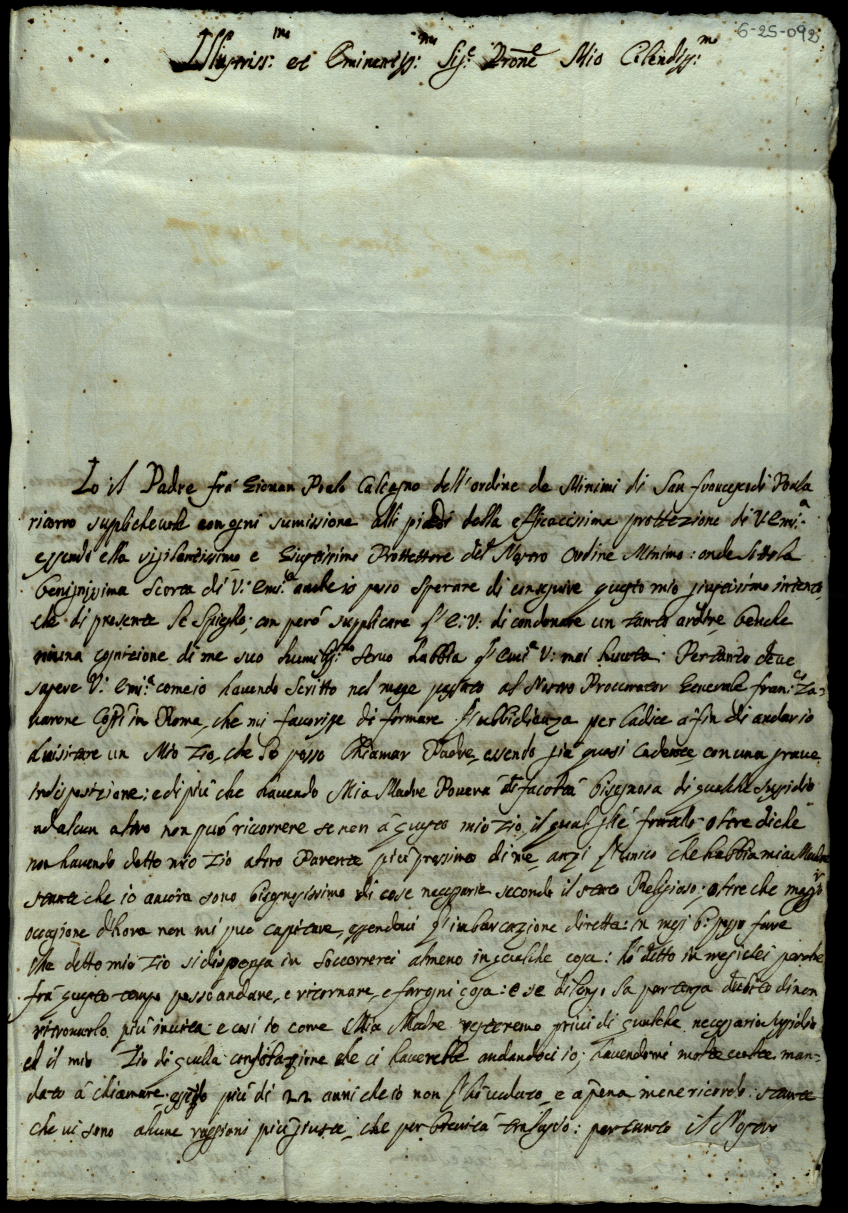 6-25-092
Illustriss.mo et Eminentiss.mo Sig.re Prone Mio Colendiss.mo
Io il Padre frà Giovan Paolo Calcagno dell'ordine de Minimi di San francesco di Paola
ricorro supplichevole con ogni sumissione alli piedi della efficacissima prottezione di V. Emi.a
essendo ella vigilantissimo e Giustissimo Prottettore del Nostro Ordine Minimo: onde sotto la
benignissima scorta di V: Emi.a anche io posso sperare di conseguire questo mio giustissimo intento,
che di presente le spiego; con però supplicare l'E: V: di condonare un tanto ardire, benche
niuna cognizione di me suo humiliss.mo servo habbia l'Emi.a V: mai havuta. Pertanto deve
sapere V: Emi.a come io havendo scritto nel mese passato al Nostro Procurator Generale fran.co Za-
varone costì in Roma, che mi favorisse di formare l'ubbidienza per Cadice a fin di andar io
à visitare un Mio Zio, che lo posso chiamar Padre, essendo già quasi cadente con una grave
indisposizione; e di più che havendo Mia Madre Povera di facoltà bisognosa di qualche susidio
nd alcun altro non può ricorrere se non à questo mio zio, il qual gl'è fratello: oltre di che
non havendo detto mio Zio altro Parente più prossimo di me, anzi l'unico che habbia mia Madre
stante che io ancora sono bisognosissimo di cose necessarie secondo il stato Religioso; oltre che magg.r
occasione d'hora non mi può capitare, essendovi l'imbarcazione diretta: in mesi 6: posso fare
che detto mio Zio si disponga in soccorrerci almeno in qualche cosa: hò detto in mesi sei perche
frà questo tempo posso andare, e ritornare, e far ogni cosa: e se dilongo la partenza dubito di non
ritrovarlo più in vita: e così io come Mia Madre resteremo privi di qualche necessario susidio
ed il mio Zio di quella consolazione che ci haverebbe andandoci io; havendomi molte volte man-
dato à chiamare, essendo più di 22 anni che io non l'hò veduto, e apena me ne ricordo: stante
che vi sono alcune raggioni più giuste, che per brevità tralascio: pertanto il Nostro